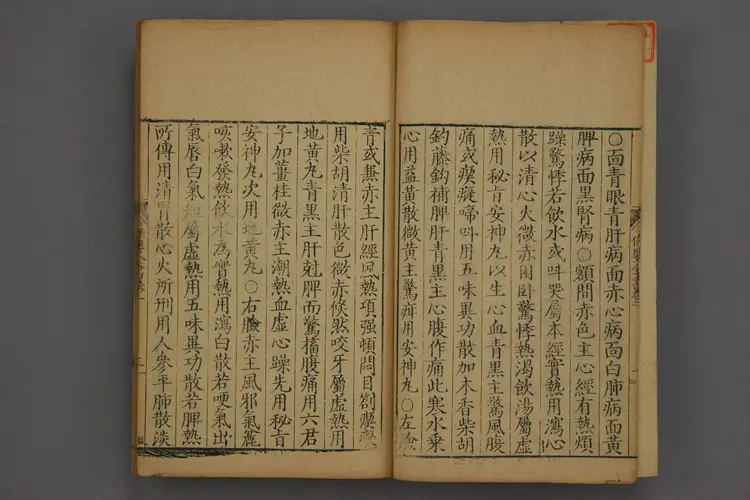 ○面青眼青肝病面赤心病面白肺病面黃
脾病面黑腎病○額間赤色主心經有熱煩
躁驚悸若飲水或叫哭屬本經實熱用瀉心
散以清心火微赤困卧驚悸熱渴飲湯屬虛
熱用秘旨安神丸以生心血青黑主驚風腹
痛或瘈瘲啼叫用五味異功散加木香柴胡
鈎藤鈎補脾肝青黑主心腹作痛此寒水乘
心用益黃散微黃主驚疳用安神丸○左臉
青或兼赤主肝經風熱項强頓悶目劄瘈瘲
用柴胡清肝散色微赤倐然咬牙屬虛熱用
地黃丸青黑主肝尅脾而驚搐腹痛用六君
子加薑桂微赤主潮熱血虛心躁先用秘旨
安神丸次用地黃丸○右臉赤主風邪氣麄
咳嗽發熱飲水為實熱用瀉白散若哽氣出
氣唇白氣短屬虛熱用五味異功散若脾熱
所傳用清胃散心火所刑用人參平肺散淡